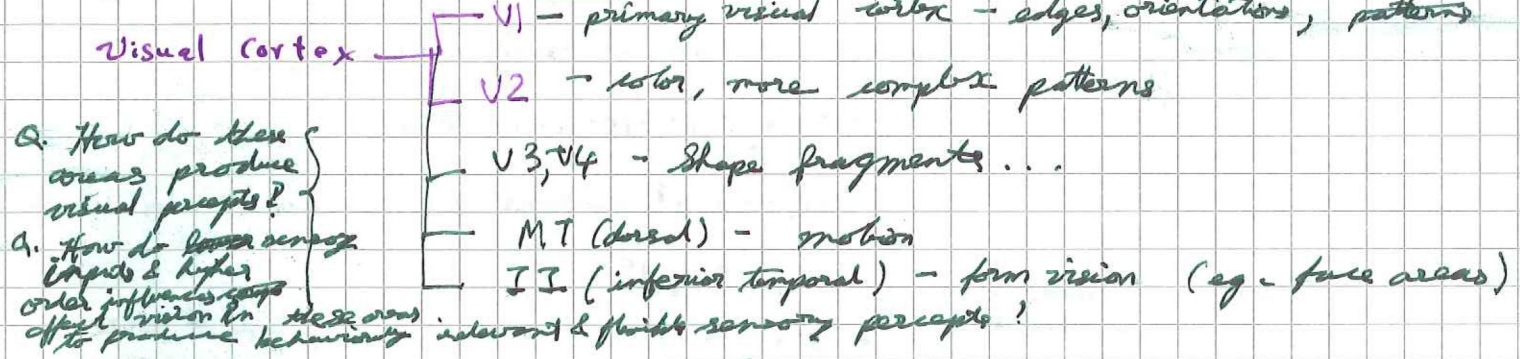 V1 - primary visual cortex - edges, orientations, patterns
Visual Cortex
V2 - color, more complex patterns
V3, V4 - Shape fragments ...
MT (dorsal) - motion
II (inferior temporal) - form vision (eg - face areas)
Q. How do these
areas produce
visual percepts?
Q. How do sensory
inputs & higher
order influences
affect vision in these areas
to produce behaviorally relevant & flexible sensory percepts?